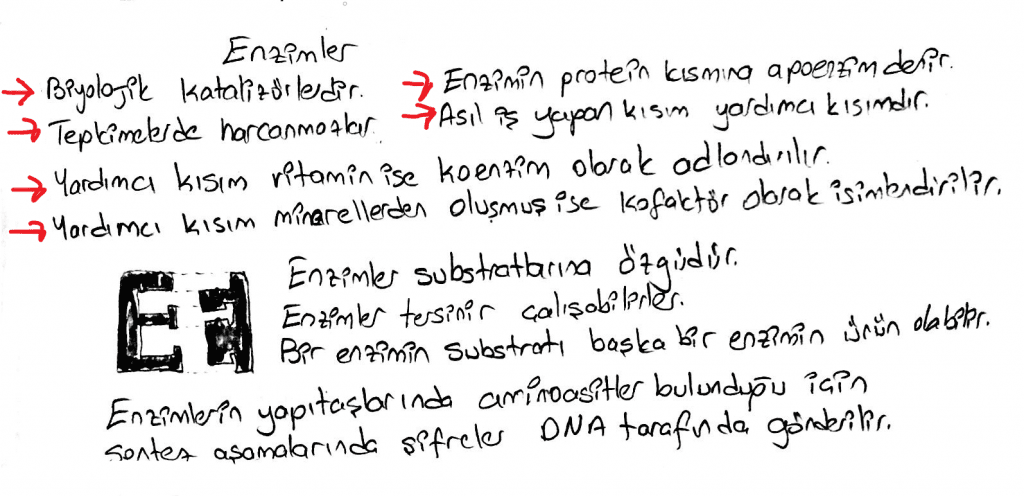 Enzimler
Biyolojik katalizörlerdir.
Tepkimelerde harcanmazlar.
Enzimin protein kısmına apoenzim denir.
Asıl iş yapan kısım yardımcı kısımdır.
Yardımcı kısım vitamin ise koenzim olarak adlandırılır.
Yardımcı kısım minarellerden oluşmuş ise kofaktör olarak isimlendirilir.
Enzimler substratlarına özgüdür.
Enzimler tersinir çalışabilirler.
Bir enzimin substratı başka bir enzimin ürün olabilir.
Enzimlerin yapıtaşlarında aminoasitler bulunduğu için
sentez aşamalarında şifreler DNA tarafında gönderilir.